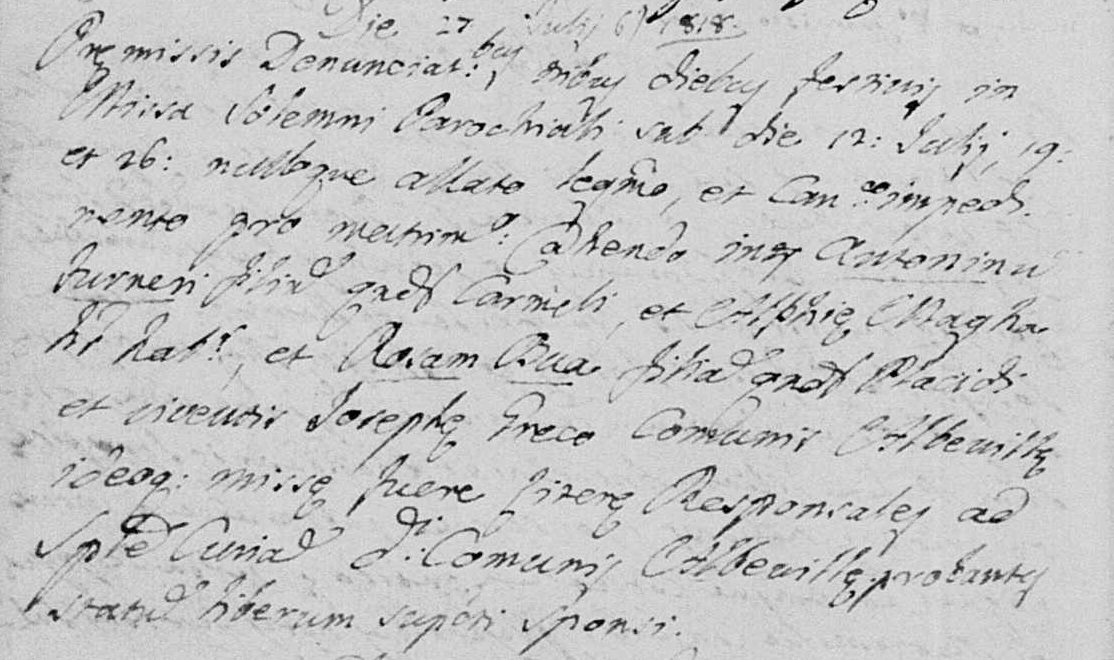 Die 27 Julij 1818.
Premissis Denunciat:bus, tribus diebus festivis in
Missa Solemni Parochiali sub die 12: Julij, 19:
et 26: nulloque allato legmo, et Can:co impedi-
mento pro matrimo: Chendo inter Antoninu
Furneri filiu qndm Carmeli, et Alphie Magha
hi hat:s, et Rosam Bua filia qndm Placidi
et viventis Josephe Greco Comunis Albeville
ideoq: misse fuere litere Responsales ad
Spte Curia di: Comunis Albeville, probantes
statu liberum supti sponsi.